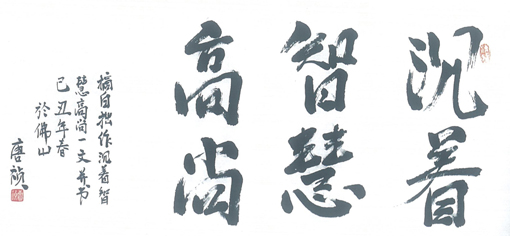 沉着
智慧
高尚
摘自拙作沉着智
慧高尚一文并书
己丑年春
於佛山
唐祯